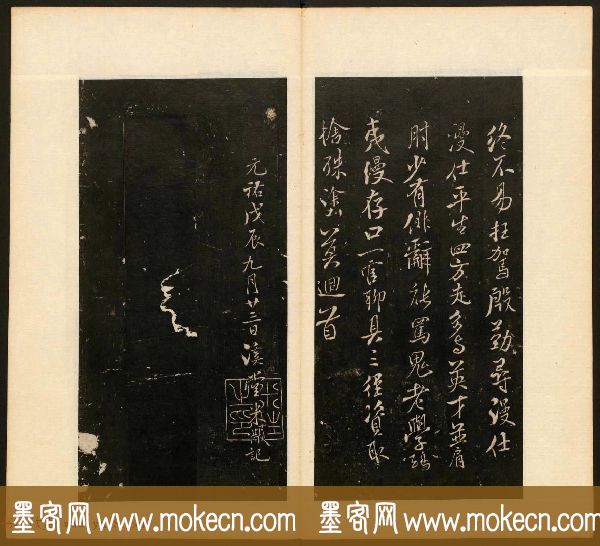 終不易枉駕殷勤尋漫仕
漫仕平生四方走多与英才並肩
肘少有俳辭能罵鬼老學鴟
夷漫存口一官聊具三徑資取
捨殊塗莫迴首
元祐戊辰九月廿三日溪堂米黻記
墨客网 www.mokecn.com 墨客网 www.mokecn.com